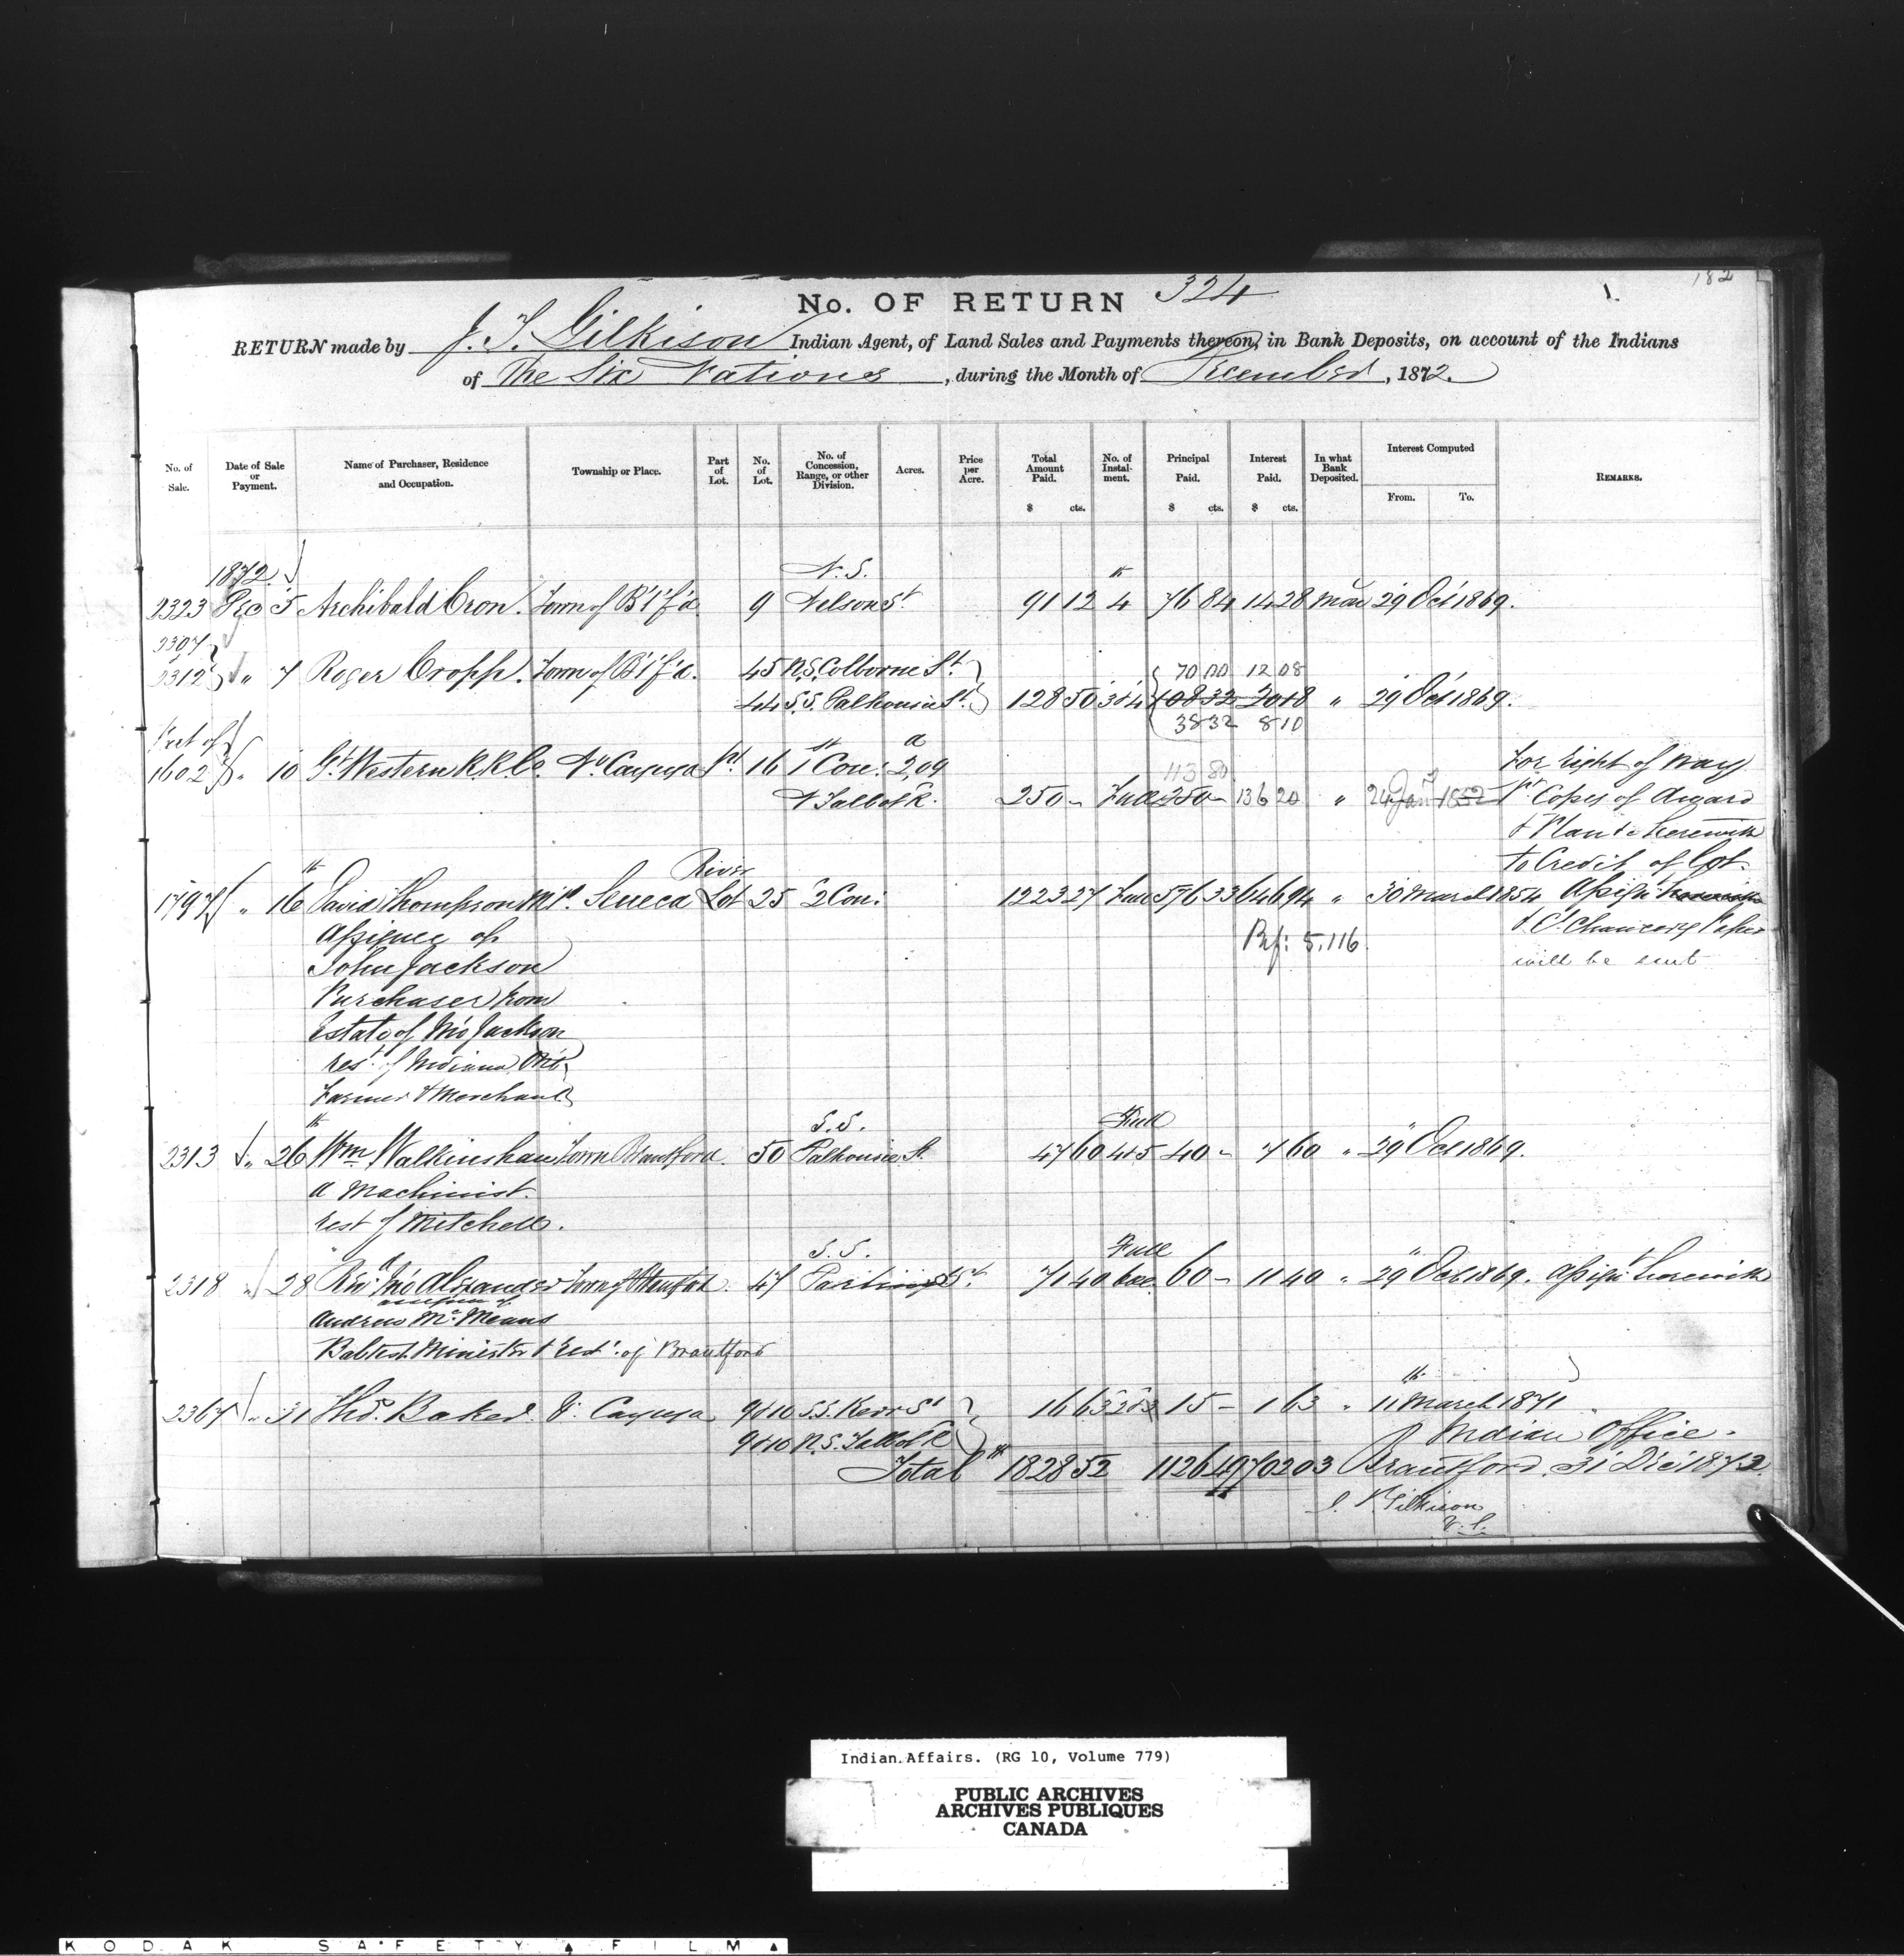 182
1.
No. OF RETURN 324
RETURN made by J. T. Gilkison Indian Agent, of Land Sales and Payments thereon, in Bank Deposits, on account of the Indians
of The Six Nations, during the Month of December, 1872.
No. of Sale. Date of Sale or Payment. Name of Purchaser, Residence and Occupation. Township or Place. Part of Lot. No. of Lot. No. of Concession, Range, or other Division. Acres. Price per Acre. Total Amount Paid. $ cts. No. of Instalment. Principal Paid. $ cts. Interest Paid. $ cts. In what Bank Deposited. Interest Computed From. To. REMARKS.
1872. N. S.
2323 Dec 5 Archibald Cron. Town of B't'f'd 9 Nelson St 91 12 4th 76 84 14 28 Mon 29 Oct 1869.
2307
2312 " 7 Roger Cropp. Town of B't'f'd. 45 N.S. Colborne St 70 00 12 08
44 S.S. Dalhousie St. 128 50 3&4 108 32 20 18 " 29 Oct 1869.
38 32 8 10
Part of
1602 " 10 Gt. Western R.R. Co. No. Cayuga Pt. 16 1st Con: 2,09a For right of way
113 80
N Talbot R. 250 - Full 250 - 136 20 " 24 Jany 1852 Copies of Award
& Plan &c herewith
River to Credit of Lot.
1797 " 16th David Thompson M.P. Seneca Lot 25 2 Con: 1223 27 Full 576 33 646 94 " 30 March 1854 Assign't herewith
Assignee of Ref: 5,116 & Ct. Chancery Paper
John Jackson will be sent
Purchaser from
Estate of Jno Jackson
rest. of Indiana Ont.
Farmer & Merchant
S.S. Full
2313 " 26th Wm Walkinshaw Town Brantford. 50 Dalhousie St. 47 60 4&5 40 - 7 60 " 29 Oct 1869.
A Machinist.
rest of Mitchell.
S.S. Full
2318 " 28 Revd. Jno Alexander Town of Brantford. 47 Darling St. 71 40 60 - 11 40 " 29 Oct 1869. Assign't herewith
assignee of
Andrew McMeans
Babtest Minister & rest. of Brantford
2367 " 31 Thos. Baker. V. Cayuga 9&10 S.S. Kerr St 16 63 2&3 15 - 1 63 " 11th March 1871
9&10 N.S. Talbot R Indian Office.
Total $ 1828 52 1126 49 702 03 Brantford. 31 Dec 1872.
J. T. Gilkison
V.S.
Indian Affairs. (RG 10, Volume 779)
PUBLIC ARCHIVES
ARCHIVES PUBLIQUES
CANADA
KODAK SAFETY FILM